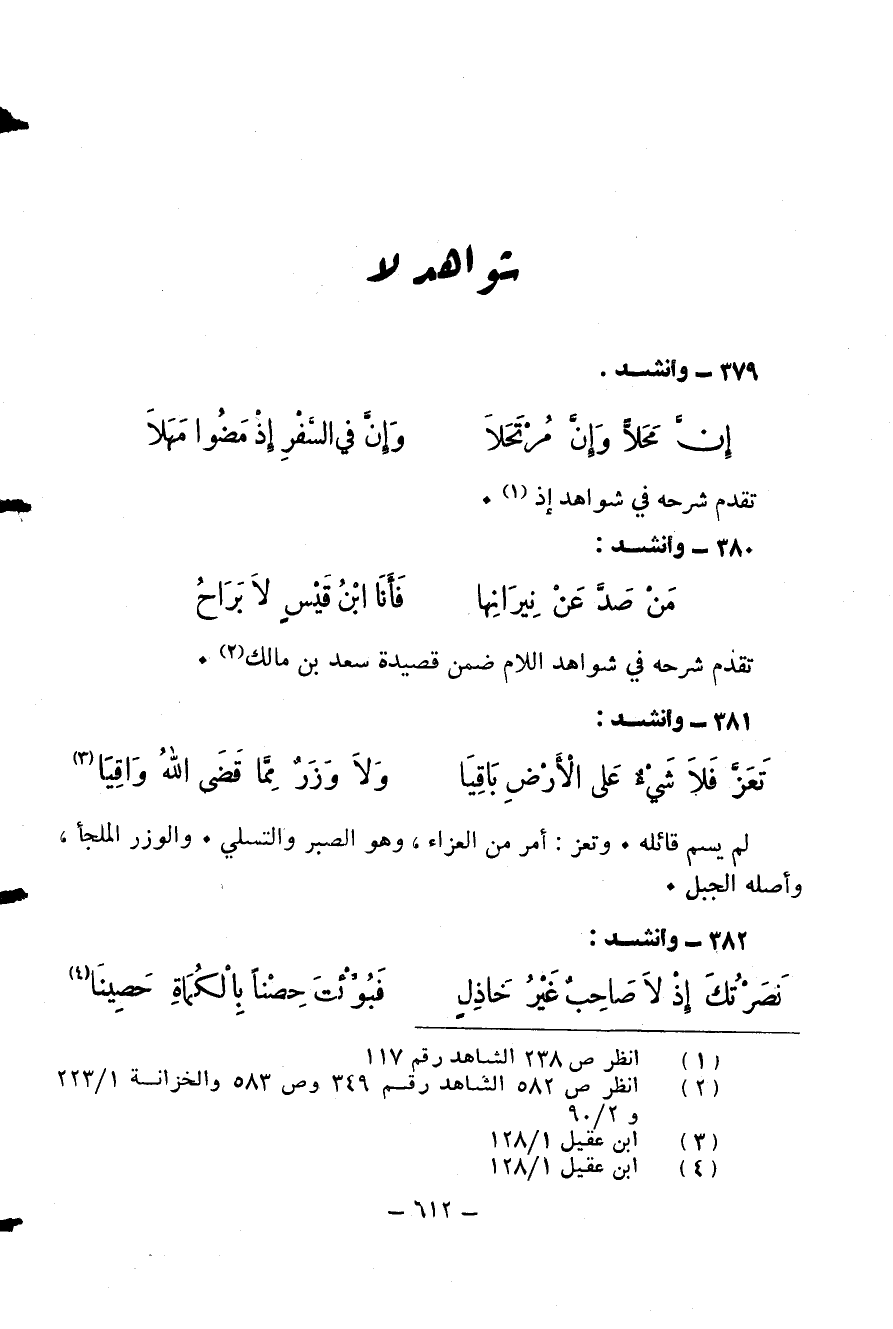 شواهد لا
٣٧٩ – وأنشد .
إِنَّ مَحَلاًّ وَإِنَّ مُرْتَحَلاَ وَإِنَّ في السَّفْرِ إِذْ مَضُوا مَهَلاَ
تقدم شرحه في شواهد إذ (١) ٠
٣٨٠ – وأنشد :
مَنْ صَدَّ عَنْ نِيرَانِها فَأَنَا ابْنُ قَيْسٍ لاَ بَرَاحُ
تقدم شرحه في شواهد اللام ضمن قصيدة سعد بن مالك(٢) ٠
٣٨١ – وأنشد :
تَعَزَّ فَلاَ شَيْءٌ عَلى الْأَرْضِ بَاقِيَا وَلاَ وَزَرٌ مِمَّا قَضَى اللهُ وَاقِيَا(٣)
لم يسم قائله ٠ وتعز : أمر من العزاء ، وهو الصبر والتسلي ٠ والوزر الملجأ ،
وأصله الجبل ٠
٣٨٢ – وأنشد :
نَصَرْتُكَ إِذْ لاَ صَاحِبٌ غَيْرُ خَاذِلٍ فَبُوِّئْتَ حِصْناً بِالْكُمَاةِ حَصِينَا(٤)
(١) انظر ص ٢٣٨ الشاهد رقم ١١٧
(٢) انظر ص ٥٨٢ الشاهد رقم ٣٤٩ وص ٥٨٣ والخزانة ٢٢٣/١
و ٩٠/٢
(٣) ابن عقيل ١٢٨/١
(٤) ابن عقيل ١٢٨/١
– ٦١٢ –